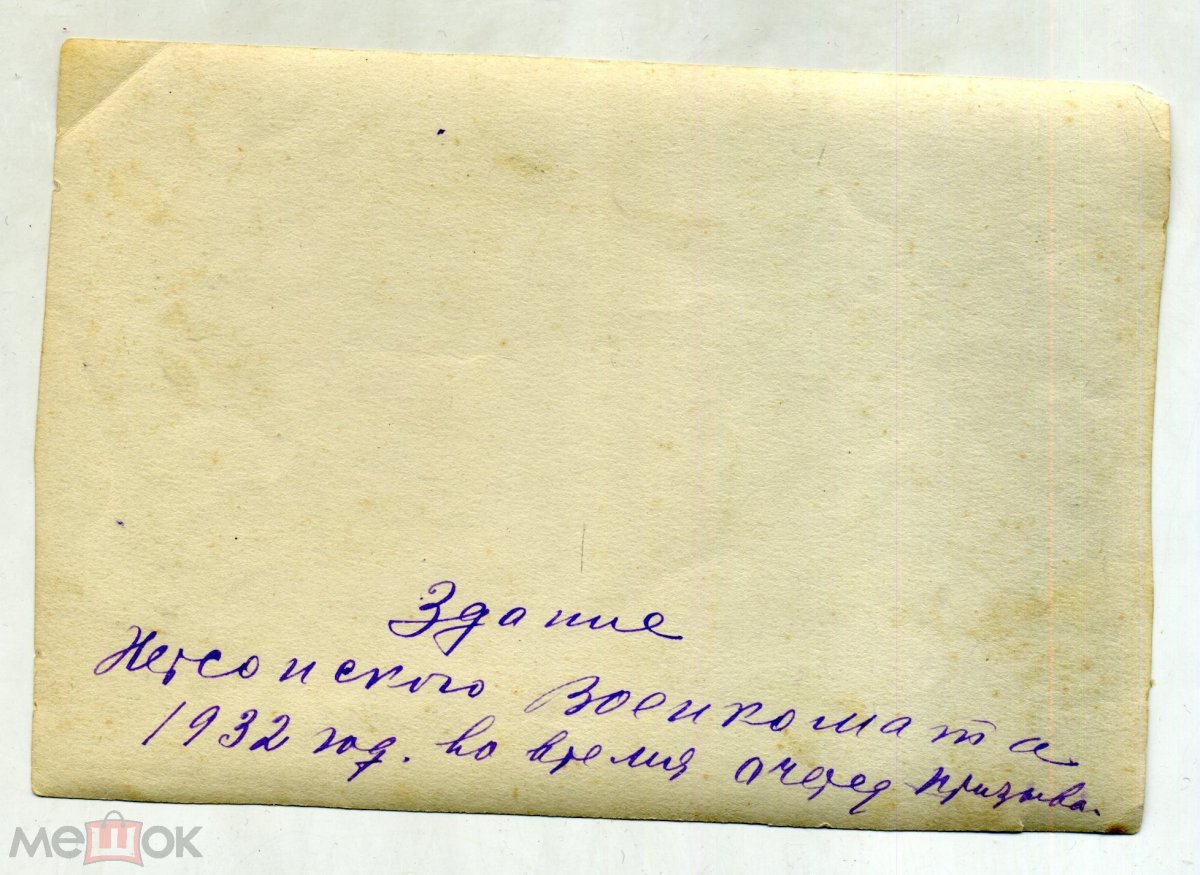 Здание
Херсонского Военкомата
1932 год. во время очеред призыва.
мешок